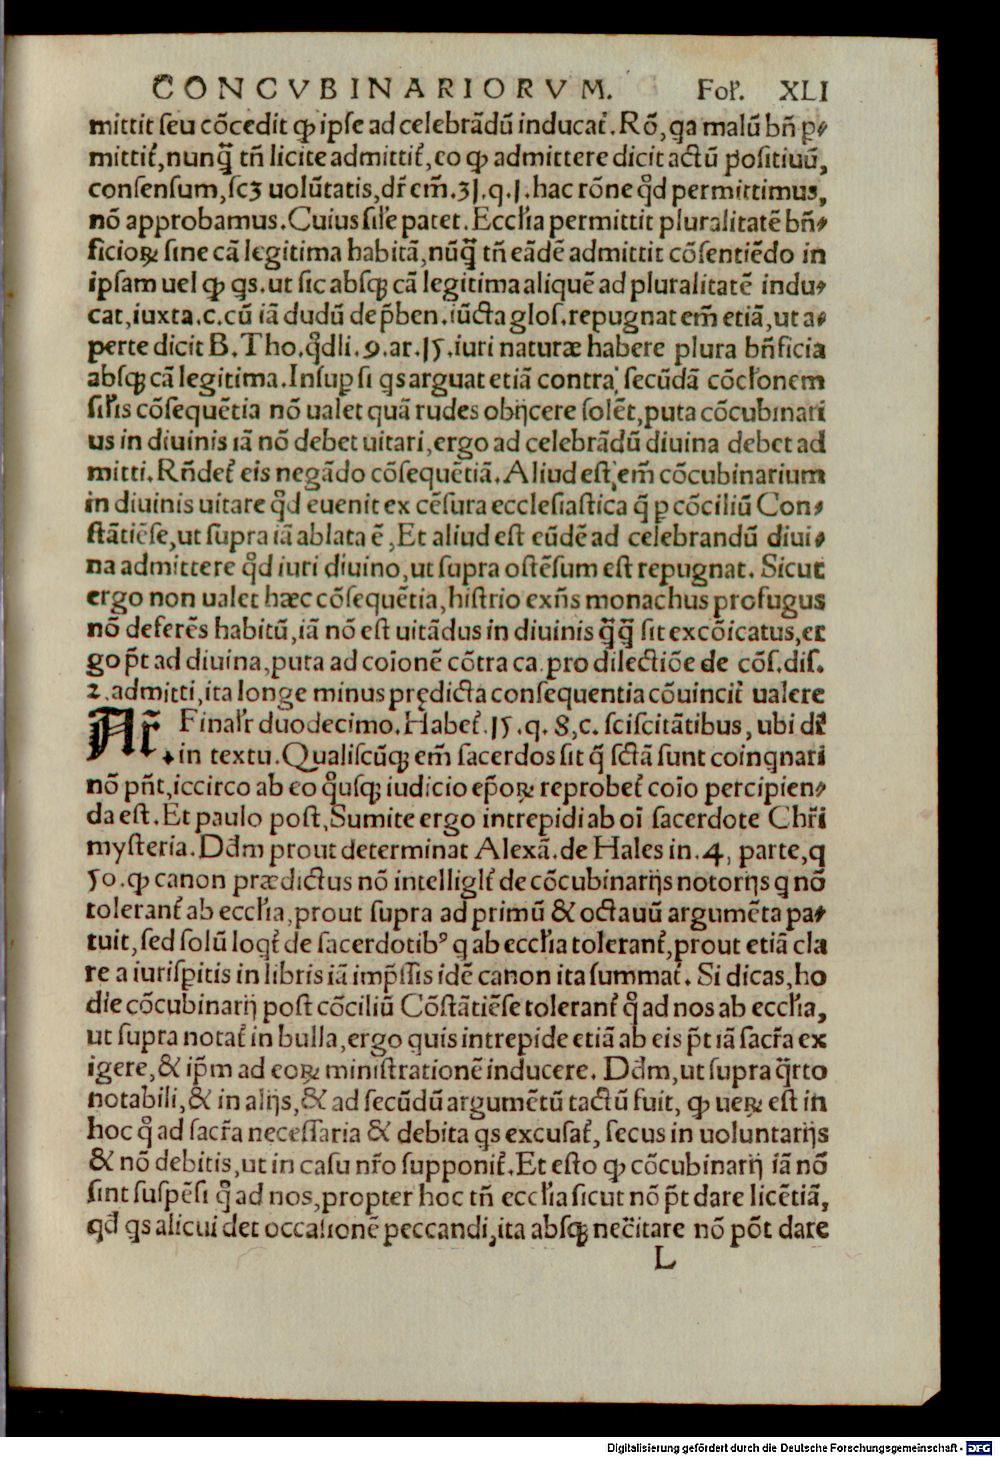 CONCVBINARIORVM. Foł. XLI
mittit seu cõcedit ꝙ ipse ad celebrãdũ inducat᷑. Rõ, qa malũ bñ ꝑ-
mittit᷑, nunq̃ tñ licite admittit᷑, eo ꝙ admittere dicit actũ positiuũ,
consensum, scꝫ uolũtatis, dr̃ em̃. 31. q. 1. hac rõne qd permittimus,
nõ approbamus. Cuius sił'e patet. Eccł'ia permittit pluralitatẽ bñ-
ficioꝝ sine cã legitima habitã, nũq̃ tñ eãdẽ admittit cõsentiẽdo in
ipsam uel ꝙ qs. ut sic absqꝫ cã legitima aliquẽ ad pluralitatẽ indu-
cat, iuxta. c. cũ iã dudũ de p̃ben. iũcta glos. repugnat em̃ etiã, ut a-
perte dicit B. Tho. q̊dli. 9. ar. 15. iuri naturæ habere plura bñficia
absqꝫ cã legitima. Insuꝑ si qs arguat etiã contra secũdã cõcł'onem
sił'is cõsequẽtia nõ ualet quã rudes obijcere solẽt, puta cõcubinari
us in diuinis iã nõ debet uitari, ergo ad celebrãdũ diuina debet ad
mitti. Rñdet᷑ eis negãdo cõsequẽtiã. Aliud est, em̃ cõcubinarium
in diuinis uitare qd euenit ex cẽsura ecclesiastica q̃ ꝑ cõciliũ Con-
stãtiẽse, ut supra iã ablata ẽ, Et aliud est eũdẽ ad celebrandũ diui-
na admittere qd iuri diuino, ut supra ostẽsum est repugnat. Sicut
ergo non ualet hæc cõsequẽtia, histrio exñs monachus profugus
nõ deferẽs habitũ, iã nõ est uitãdus in diuinis q̃q̃ sit excõicatus, er
go p̃t ad diuina, puta ad coionẽ cõtra ca. pro dilectiõe de cõs. dis.
2. admitti, ita longe minus prędicta consequentia cõuincit᷑ ualere
Ar̃. Finał'r duodecimo. Habet᷑. 15. q. 8, c. sciscitãtibus, ubi dr̃
in textu. Qualiscũqꝫ em̃ sacerdos sit q̃ sctã sunt coinqnari
nõ pñt, iccirco ab eo q̊usqꝫ iudicio ep̃oꝝ reprobet᷑ coio percipien-
da est. Et paulo post, Sumite ergo intrepidi ab oi sacerdote Chr̃i
mysteria. Dd̃m prout determinat Alexã. de Hales in. 4, parte, q
50. ꝙ canon prædictus nõ intelligit᷑ de cõcubinarijs notorijs q nõ
tolerant᷑ ab eccł'ia, prout supra ad primũ & octauũ argumẽta pa-
tuit, sed solũ loqt᷑ de sacerdotibꝰ q ab eccł'ia tolerant᷑, prout etiã cla
re a iurisp̃itis in libris iã imp̃ssis idẽ canon ita summat᷑. Si dicas, ho
die cõcubinarij post cõciliũ Cõstãtiẽse tolerant᷑ q̊ ad nos ab eccł'ia,
ut supra notat᷑ in bulla, ergo quis intrepide etiã ab eis p̃t iã sacr̃a ex
igere, & ip̃m ad eoꝝ ministrationẽ inducere. Dd̃m, ut supra q̃rto
notabili, & in alijs, & ad secũdũ argumẽtũ tactũ fuit, ꝙ ueꝝ est in
hoc q̊ ad sacr̃a necessaria & debita qs excusat᷑, secus in uoluntarijs
& nõ debitis, ut in casu nr̃o supponit᷑. Et esto ꝙ cõcubinarij iã nõ
sint suspẽsi q̊ ad nos, propter hoc tñ eccł'ia sicut nõ p̃t dare licẽtiã,
qd qs alicui det occasionẽ peccandi, ita absqꝫ nec̃itate nõ põt dare
L
Digitalisierung gefördert durch die Deutsche Forschungsgemeinschaft - DFG